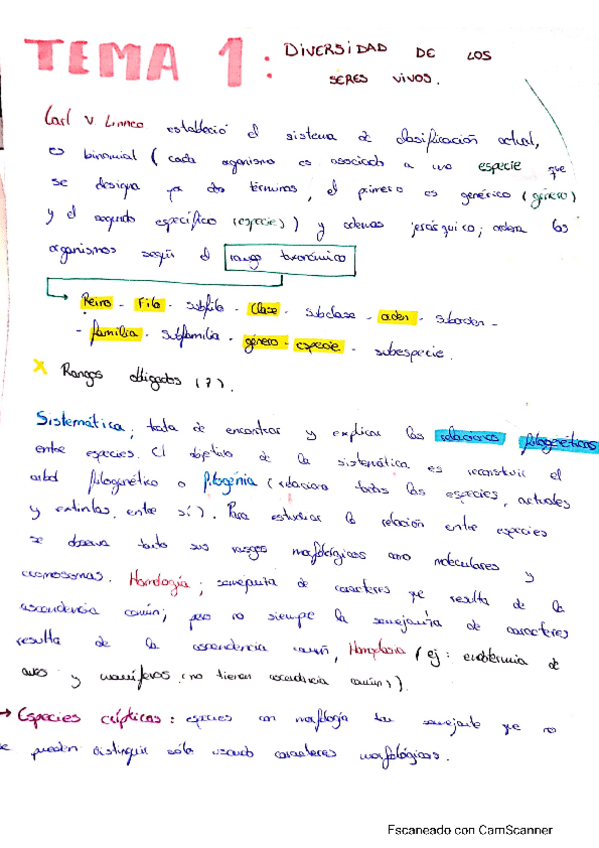 TEMA 1: DIVERSIDAD DE LOS
SERES VIVOS.
Carl V. Linneo estableció el sistema de clasificación actual,
es binomial (cada organismo es asociado a una especie que
se designa por dos términos, el primero es genérico (género)
y el segundo específico (especies)) y además jerárquico; ordena los
organismos según el rango taxonómico
Reino - Filo - subfilo - Clase - subclase - orden - suborden -
- familia - subfamilia - género - especie - subespecie.
x Rangos obligados (7).
Sistemática; trata de encontrar y explicar las relaciones filogenéticas
entre especies. El objetivo de la sistemática es reconstruir el
arbol filogenético o filogénia (relaciona todas las especies, actuales
y extintas, entre sí). Para estudiar la relación entre especies
se observa tanto sus rasgos morfológicos como moleculares y
cromosomas. Homología; semejanza de caracteres que resulta de la
ascendencia común; pero no siempre la semejanza de caracteres
resulta de la ascendencia común, Homoplasia (ej: endotermia de
aves y mamíferos (no tienen ascendencia común)).
→ Especies crípticas: especies con morfología tan semejante que no
se pueden distinguir sólo usando caracteres morfológicos.
Escaneado con CamScanner